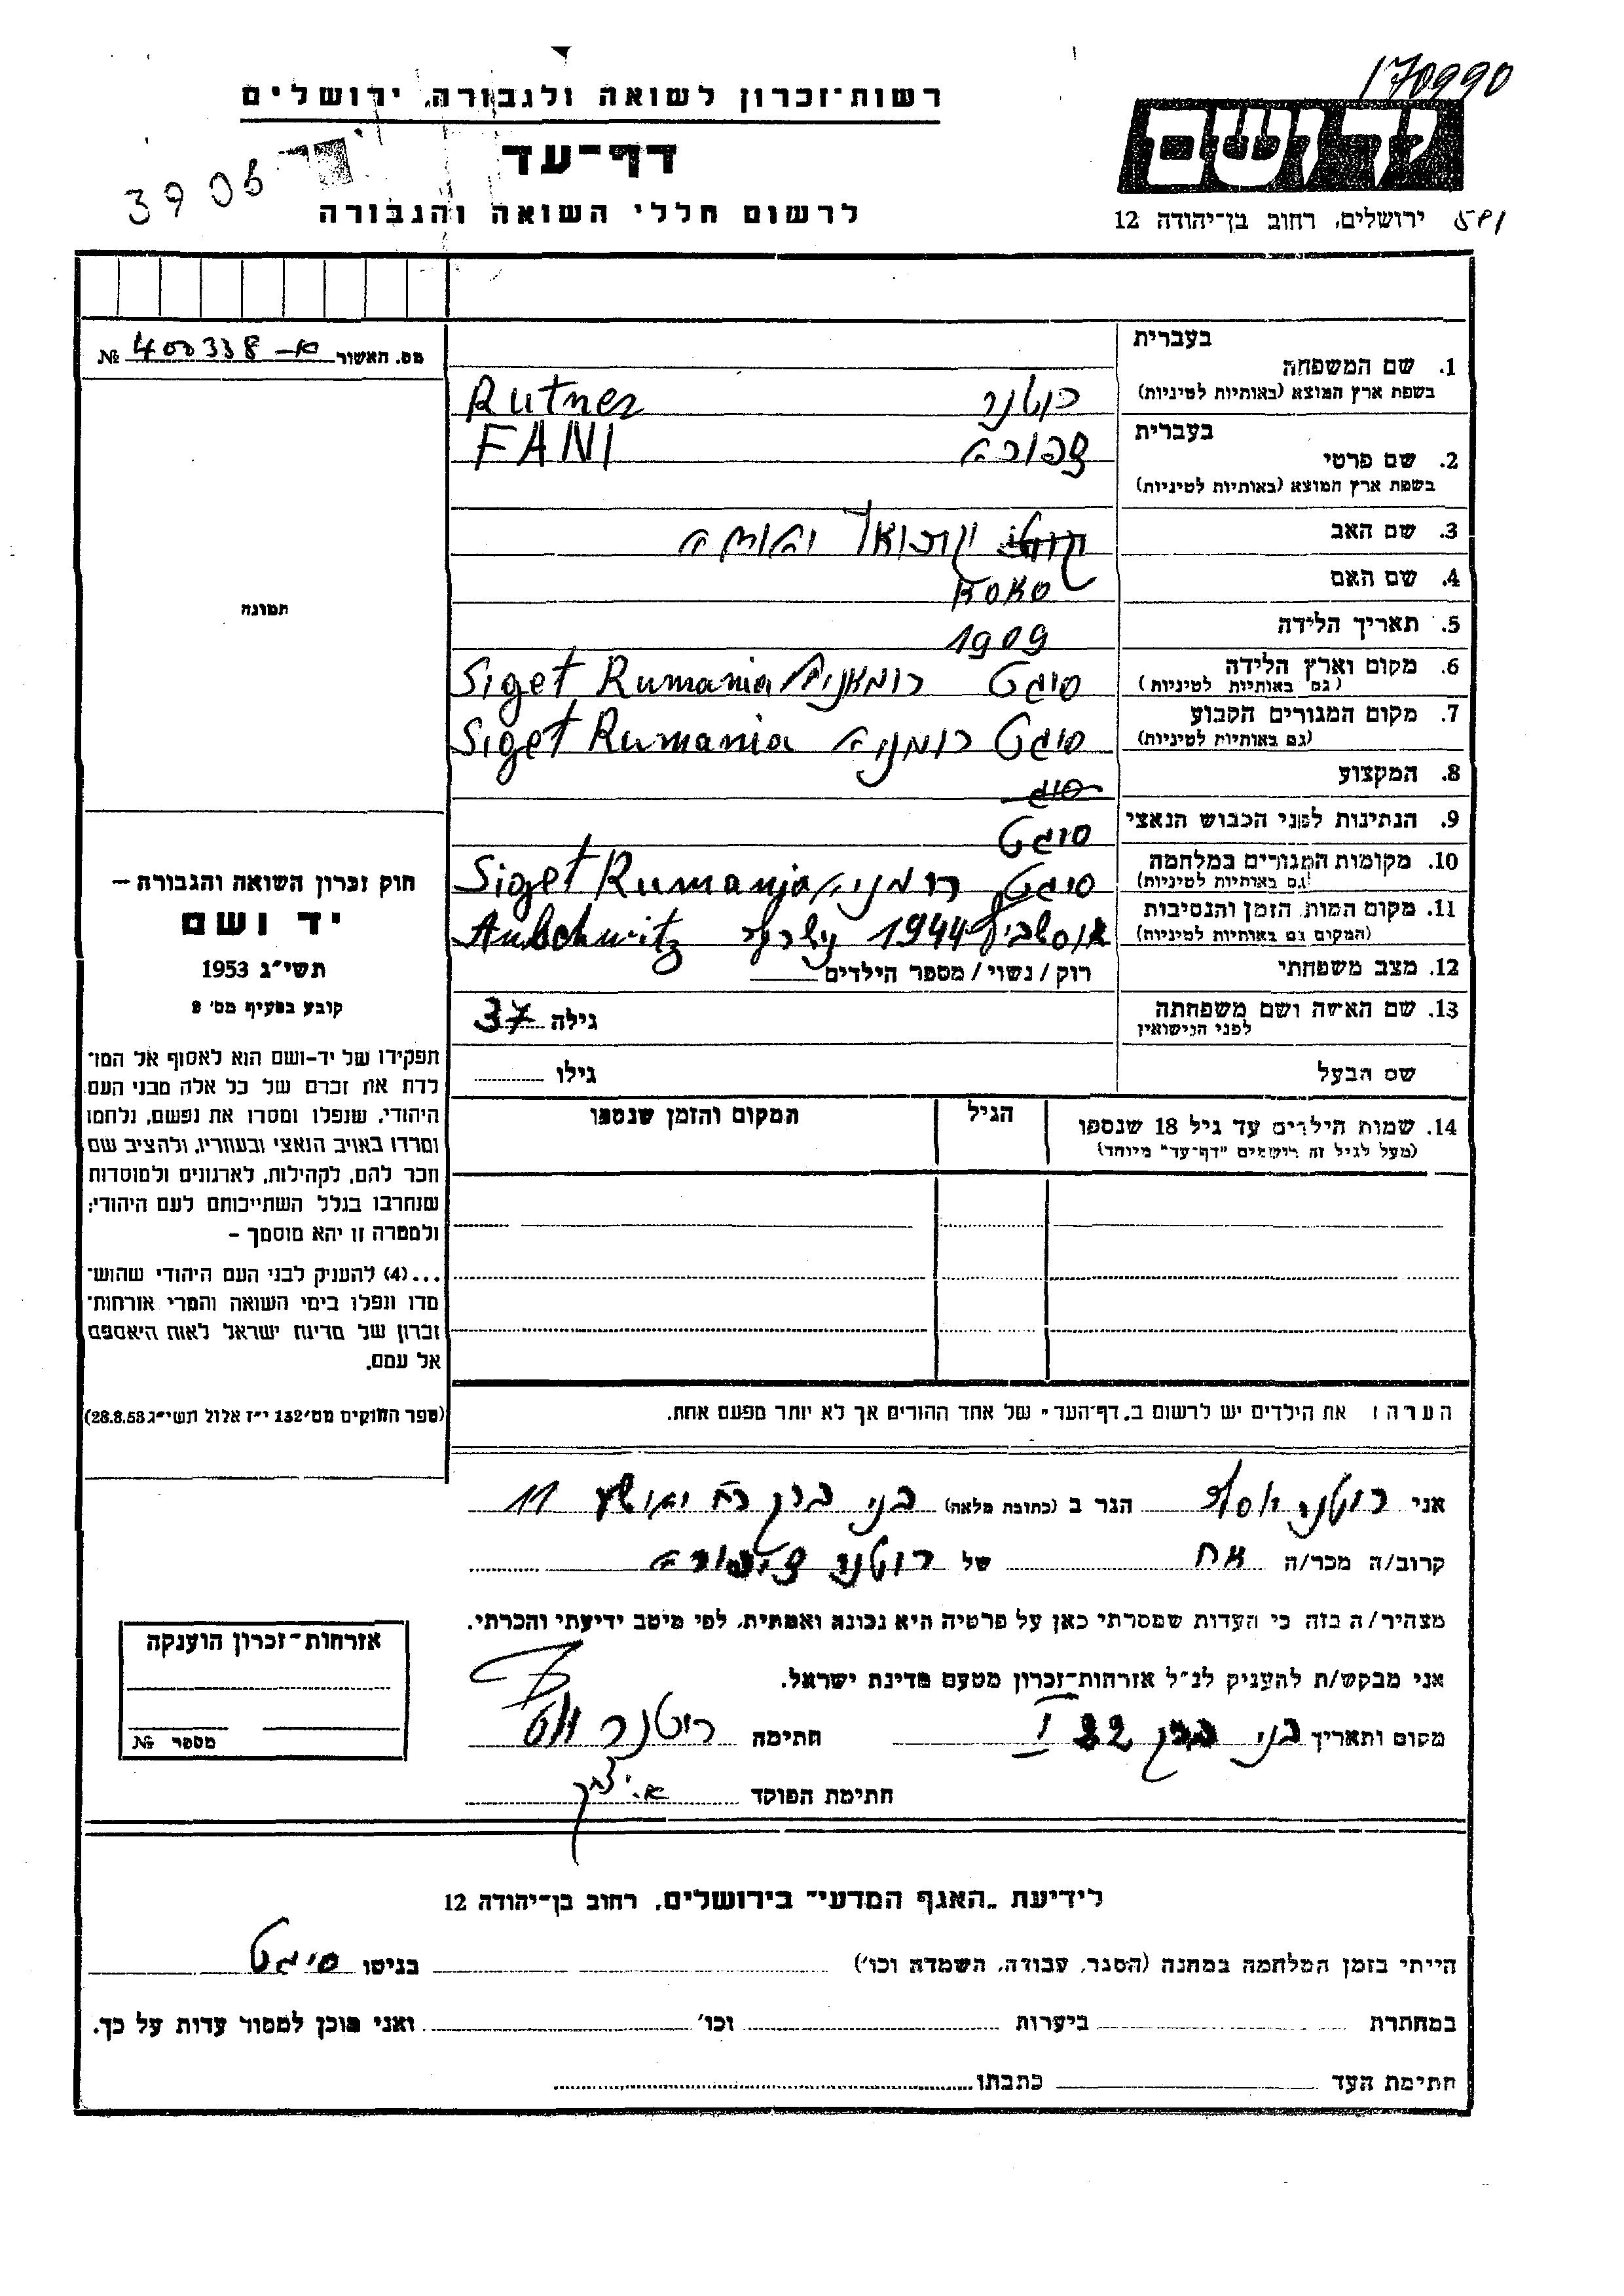 170990
רשות־זכרון לשואה ולגבורה, ירושלים
דף־עד
לרשום חללי השואה והגבורה
3906
יד ושם
ירושלים, רחוב בן־יהודה 12
581
מס. האשור א–400338 №
תמונה
חוק זכרון השואה והגבורה –
יד ושם
תשי״ג 1953
קובע בסעיף מס׳ 2
תפקידו של יד-ושם הוא לאסוף אל המו־
לדת את זכרם של כל אלה מבני העם
היהודי, שנפלו ומסרו את נפשם, נלחמו
ומרדו באויב הנאצי ובעוזריו, ולהציב שם
וזכר להם, לקהילות, לארגונים ולמוסדות
שנחרבו בגלל השתייכותם לעם היהודי;
ולמטרה זו יהא מוסמך –
...(4) להעניק לבני העם היהודי שהוש־
מדו ונפלו בימי השואה והמרי אזרחות־
זכרון של מדינת ישראל לאות היאספם
אל עמם.
(ספר החוקים מס׳ 132 י״ז אלול תשי״ג 28.8.53)
בעברית
1. שם המשפחה
בשפת ארץ המוצא (באותיות לטיניות)
רוטנר Rutner
בעברית
2. שם פרטי
בשפת ארץ המוצא (באותיות לטיניות)
צפורה FANI
3. שם האב יקותיאל יהודה
4. שם האם
5. תאריך הלידה 1909
6. מקום וארץ הלידה
(גם באותיות לטיניות)
סיגט רומאניה Siget Rumania
7. מקום המגורים הקבוע
(גם באותיות לטיניות)
סיגט רומניה Siget Rumania
8. המקצוע
9. הנתינות לפני הכבוש הנאצי סיגט
10. מקומות המגורים במלחמה
(גם באותיות לטיניות)
סיגט רומניה Siget Rumania
11. מקום המות, הזמן והנסיבות
(המקום גם באותיות לטיניות)
אושביץ 1944 Aubchwitz
12. מצב משפחתי רוק / נשוי / מספר הילדים
13. שם האשה ושם משפחתה
לפני הנישואין
גילה 37
שם הבעל גילו
14. שמות הילדים עד גיל 18 שנספו
(מעל לגיל זה רושמים "דף-עד" מיוחד)
הגיל
המקום והזמן שנספו
הערה: את הילדים יש לרשום ב„דף־העד" של אחד ההורים אך לא יותר מפעם אחת.
אני רוטנר הגר ב (כתובת מלאה) בני ברק רח יהושע 11
קרוב/ה מכר/ה אח של רוטנר ציפורה
מצהיר/ה בזה כי העדות שמסרתי כאן על פרטיה היא נכונה ואמתית, לפי מיטב ידיעתי והכרתי.
אני מבקש/ת להעניק לנ״ל אזרחות־זכרון מטעם מדינת ישראל.
מקום ותאריך בני ברק חתימה רוטנר
חתימת הפוקד
אזרחות־זכרון הוענקה
מספר №
לידיעת „האגף המדעי" בירושלים, רחוב בן־יהודה 12
הייתי בזמן המלחמה במחנה (הסגר, עבודה, השמדה וכו׳) בגיטו סיגט
במחתרת ביערות וכו׳ ואני מוכן למסור עדות על כך.
חתימת העד כתבתו